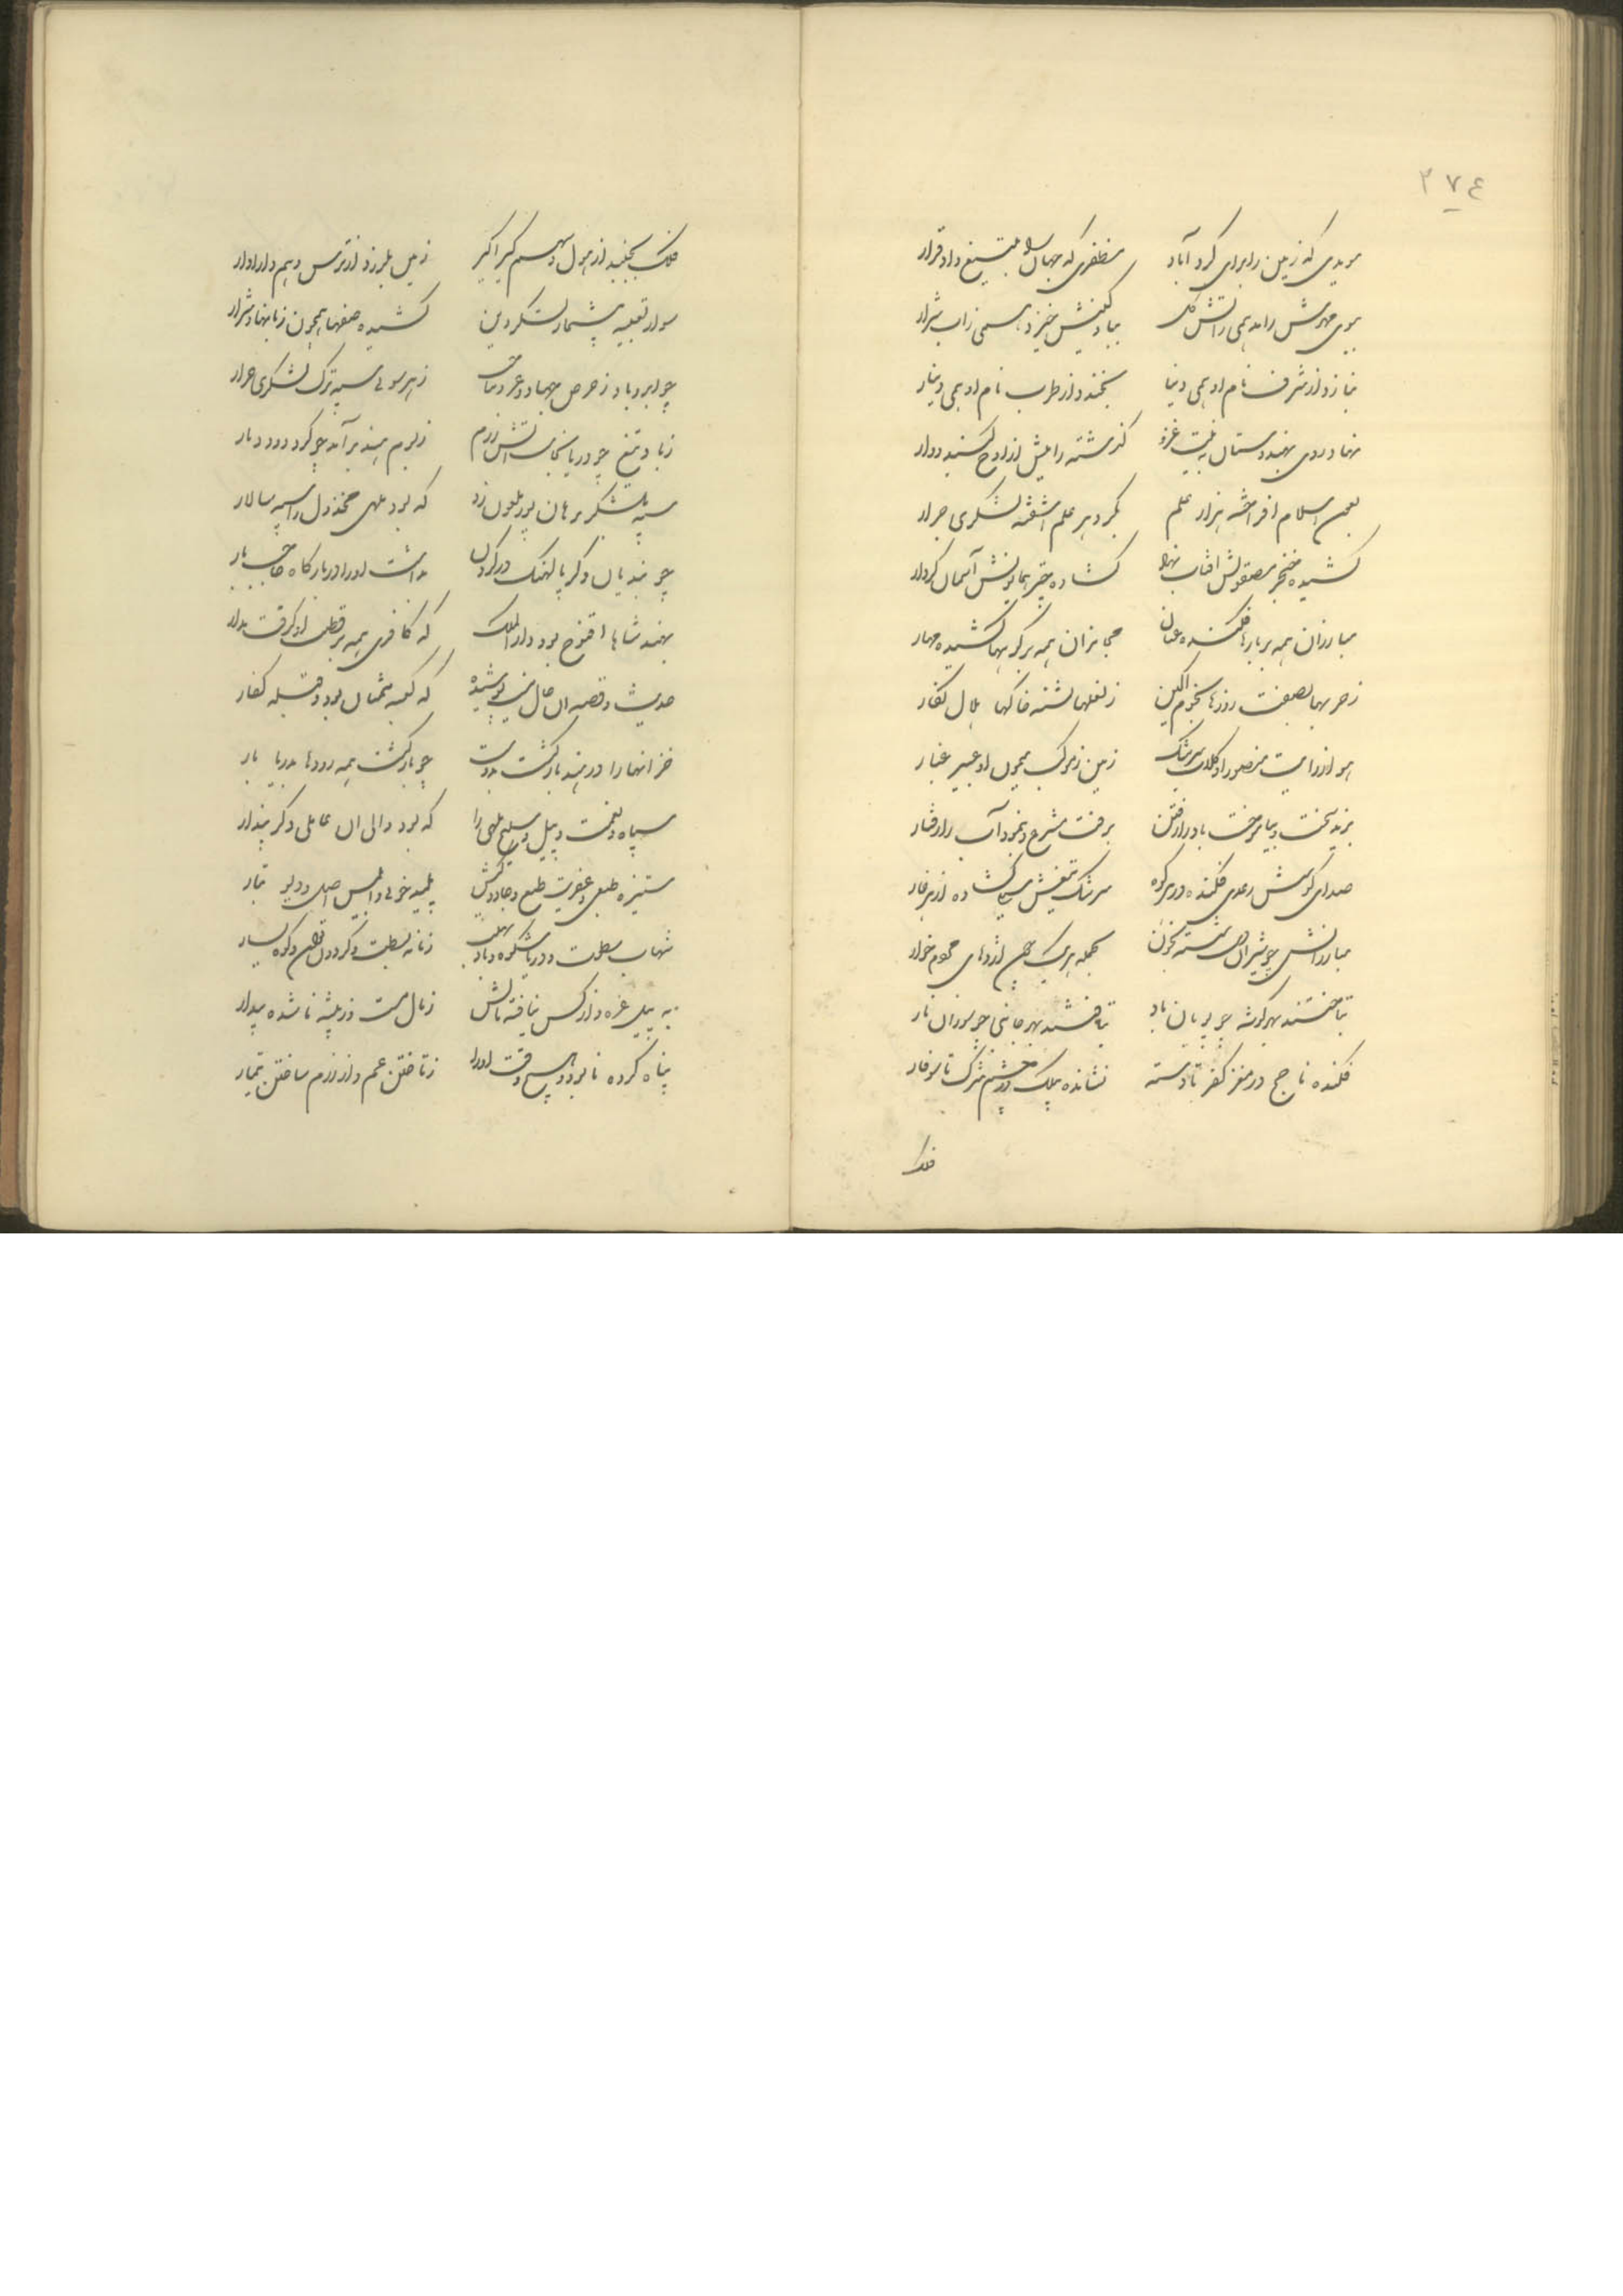 ۳۷٤
مویدی که زمین را برای کرد آباد مظفری که جهان را به تیغ داد قرار
ببوی مهرش راند همی ز آتش گل بباد کینش خیزد همی ز آب شرار
بنازد از شرف نام او همی دنیا بخندد از طرب نام او همی دینار
نهاد روی بهندوستان به نیت غزو گذشته رایتش از اوج گنبد دوار
بعون اسلام افراخته هزار علم بگرد هر علم آشفته لشکری جرار
کشیده خنجر مصقولش آفتاب نهاد گشاده چتر همایونش آسمان کردار
مبارزان همه بر بارها فکنده عنان مجاهزان همه بر کوهها کشیده مهار
ز حربها بصفت روزها نجوم آگین ز نعلها شده خاکها هلال نگار
هوا ز رایت منصور او سرشک زمین ز مرکب میمون او عبیر غبار
بزیر تخت بیاموخت باد را رفتن برفت شرع و نمود آب را رفتار
صدای کوسش رعدی فکنده در هر کوه سرشک تیغش سیلی گشاده از هر غار
مبارزانش چو شیران دست شسته بخون بحمله هر یک چون اژدهای مردم خوار
بتاختند بهر گوشه چو بزان باد بتافتند بهر جانبی چو سوزان نار
فکنده ناجخ در مغز کفر تا دسته نشانده بیلک در چشم شرک تا سوفار
فلک
فلک بجنبید از هول و سهم گیراگیر زمین بلرزد از ترس و بیم دارادار
سوار تعبیه بیشمار لشکر دین کشیده صفها همچون زبانهای شرار
چو ابر و باد ز حرص جهاد و عز و مصاف ز هر سوئی سپه ترک لشکری جرار
ز باد تیغ چو دریا بخاست آتش رزم ز بوم هند برآمد چو گرد دود دمار
سپه بلشکر برهان پور بلهون زد که بود ملهی مخذول را سپه سالار
چو بندیان دگر پالهنگ در گردن بداشت او را در بارگاه حاجب بار
بهند شاها قنوج بود دارالملک که کافری همه بر قطب او گرفت مدار
حدیث و قصه آن حال نیست پوشیده که کعبه شمنان بود و قبله کفار
خزانها را در هند بازگشت بدوست چو بازگشت همه رودها بدریا بار
سپاه و نعمت و پیل و سلیح ملهی را که بود والی آن عاملی دگر پندار
ستیزه طبعی عفریت طبع و جادو کیش پلید خوئی و ابلیس اصل و دیو تبار
شهاب سطوت و دریا شکوه و باد نهیب زمانه بسطت و گردون توان و کوه یسار
به پیل غره و از کس نیافته مالش ز مال مست وز بیشه ناشده بیدار
پناه کرده نابوده هیچ وقت او را ز تاختن غم و از رزم ساختن تیمار